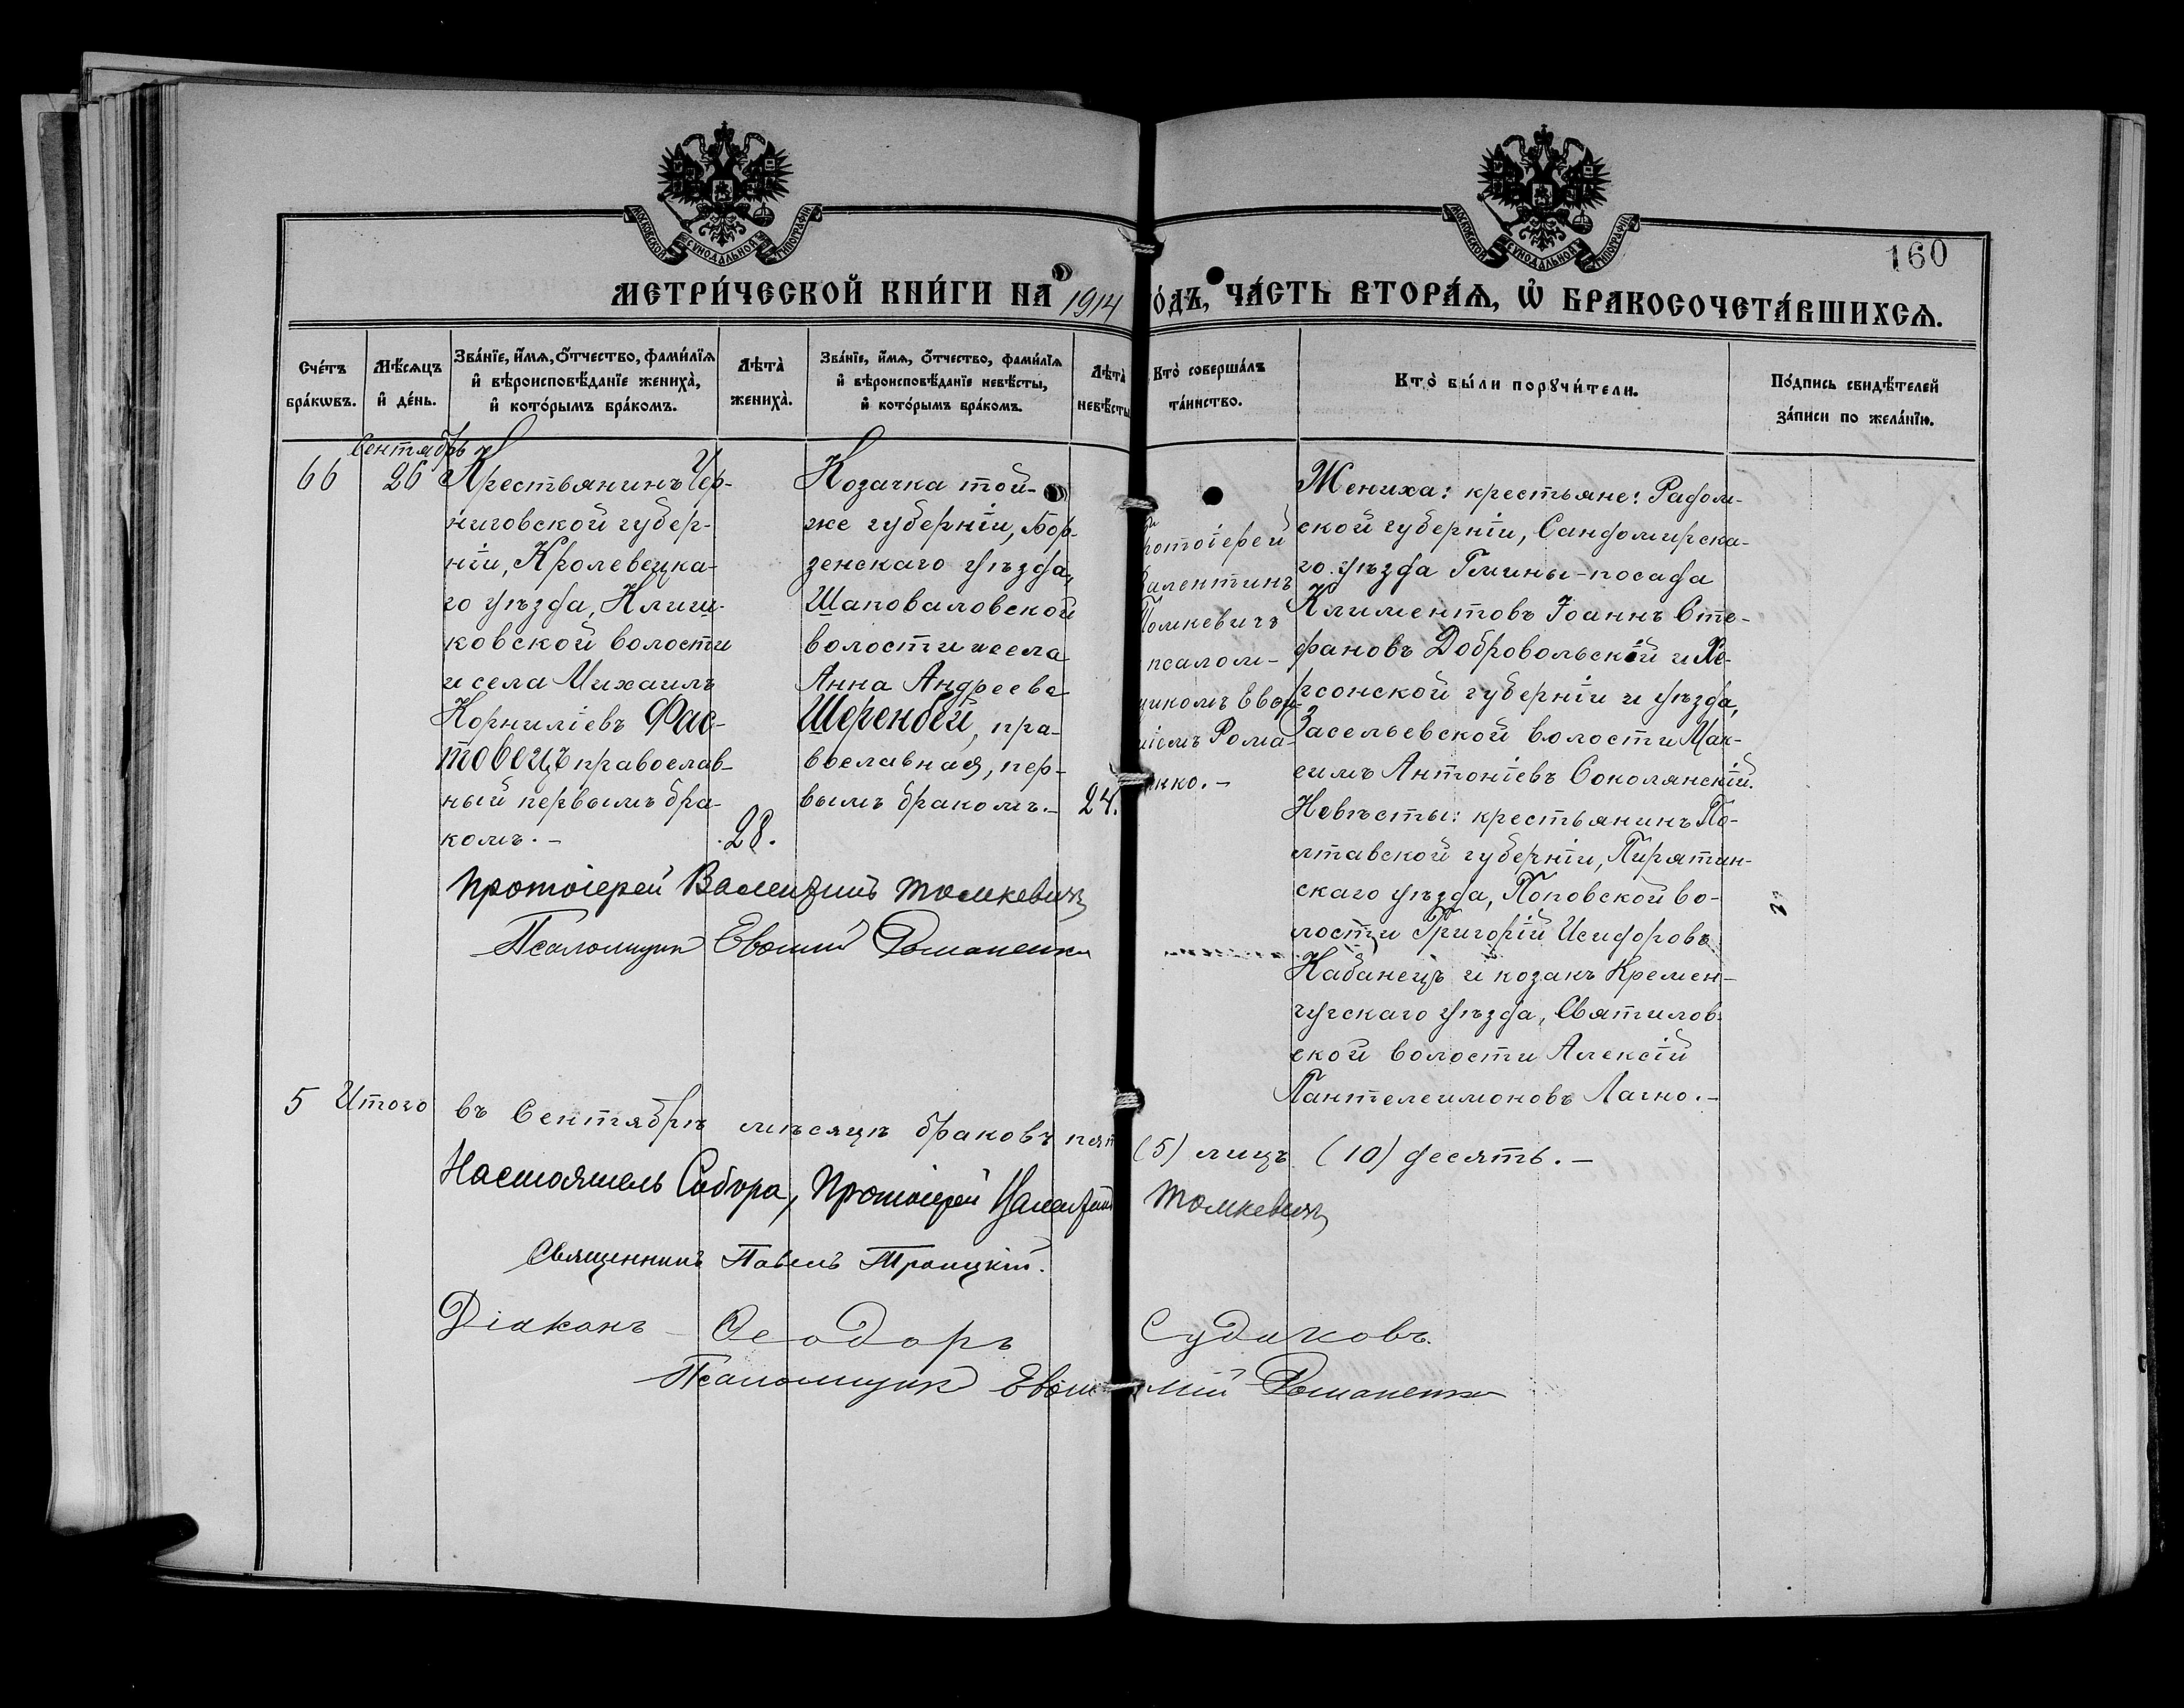 МОСКОВСКОЙ СѴНОДАЛЬНОЙ ТИПОГРАФІИ
МОСКОВСКОЙ СѴНОДАЛЬНОЙ ТИПОГРАФІИ
160
МЕТРИ́ЧЕСКОЙ КНИ́ГИ НА 1914 О́ДЪ, ЧА́СТЬ ВТОРА́Ѧ, Ѽ БРАКОСОЧЕТА́ВШИХСѦ.
Сче́тъ бра́кѡвъ.
Мѣ́сѧцъ и҆ де́нь.
Зва́нїе, и҆́мѧ, ѻ҆́тчество, фами́лїѧ и҆ вѣроисповѣ́данїе жениха̀, и҆ кото́рымъ бра́комъ.
Лѣта̀ жениха̀.
Зва́нїе, и҆́мѧ, ѻ҆́тчество, фами́лїѧ и҆ вѣроисповѣ́данїе невѣ́сты, и҆ кото́рымъ бра́комъ.
Лѣта̀ невѣ́сты
Кто̀ соверша́лъ та́инство.
Кто̀ бы́ли порꙋчи́тели.
По́дпись свидѣ́телей за́писи по жела́нїю.
Сентябрь
66
26
Крестьянинъ Чер-
ниговской губер-
ніи, Кролевецка-
го уѣзда, Клиш-
ковской волости
и села Михаилъ
Корниліевъ Фас-
товецъ православ-
ный первымъ бра-
комъ.-
28.
Козачка той-
же губерніи, Бор-
зенскаго уѣзда,
Шаповаловской
волости и села
Анна Андреева
Шерембей, пра-
вославная, пер-
вымъ бракомъ.-
24.
ротоіерей
Валентинъ
Томкевичъ
псалом-
щикомъ Евѳи-
міемъ Рома-
нко.-
Жениха: крестьяне: Радом-
ской губерніи, Сандомирска-
го уѣзда Гмины-посада
Климентовъ Іоаннъ Сте-
фановъ Добровольскій и Хе-
рсонской губерніи и уѣзда,
Засельевской волости Мак-
симъ Антоніевъ Соколянскій.
Невѣсты: крестьянинъ По-
лтавской губерніи, Пирятин-
скаго уѣзда, Поповской во-
лости Григорій Исидоровъ
Кабанецъ и козакъ Кремен-
чугскаго уѣзда, Святилов-
ской волости Алексій
Пантелеимоновъ Лагно.-
Протоіерей Валентинъ Томкевичъ
Псаломщик Евѳимій Романенко
5 Итого въ Сентябрѣ мѣсяцѣ браковъ пят (5) лицъ (10) десять.-
Настоятель Собора, Протоіерей Валентинъ Томкевичъ
Священникъ Павелъ Троицкій.
Діаконъ Ѳеодоръ Судаковъ.
Псаломщик Евѳимій Романенко